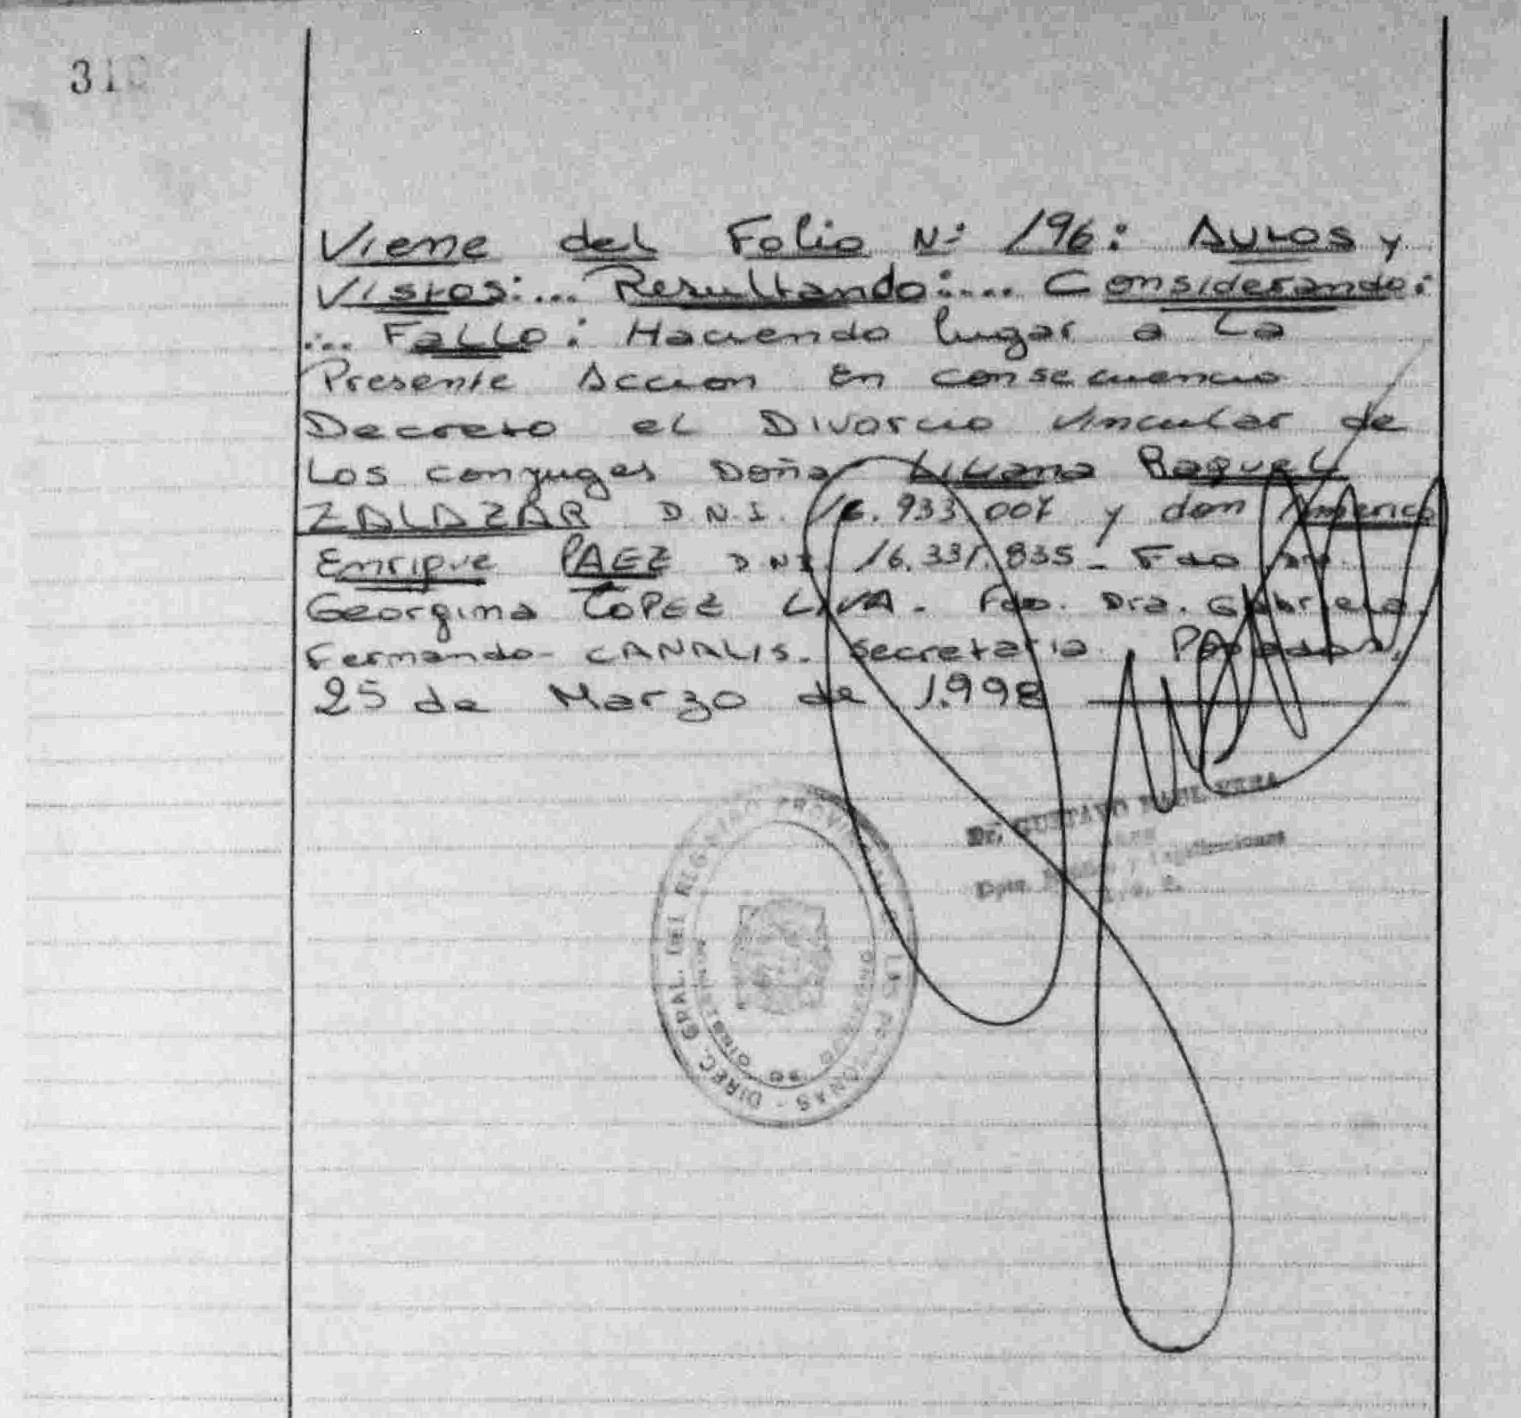 310
Viene del Folio Nº 196: Autos y
Vistos:... Resultando:... Considerando:
... Fallo: Haciendo lugar a la
Presente Accion En consecuencia
Decreto el Divorcio vincular de
Los conyuges Doña Liliana Raquel
ZALAZAR D.N.I. 16.933.007 y don Americo
Enrique PAEZ DNI. 16.331.835 - Fdo Dra.
Georgina LOPEZ LIVA. Fdo. Dra. Gabriela
Fernando CANALIS. Secretaria. Posadas,
25 de Marzo de 1.998
Dr. GUSTAVO RAUL VERA
Dpto. y Legalizaciones
DIREC. GRAL. DEL REGISTRO PROVINCIAL DE LAS PERSONAS
MINISTERIO DE GOBIERNO